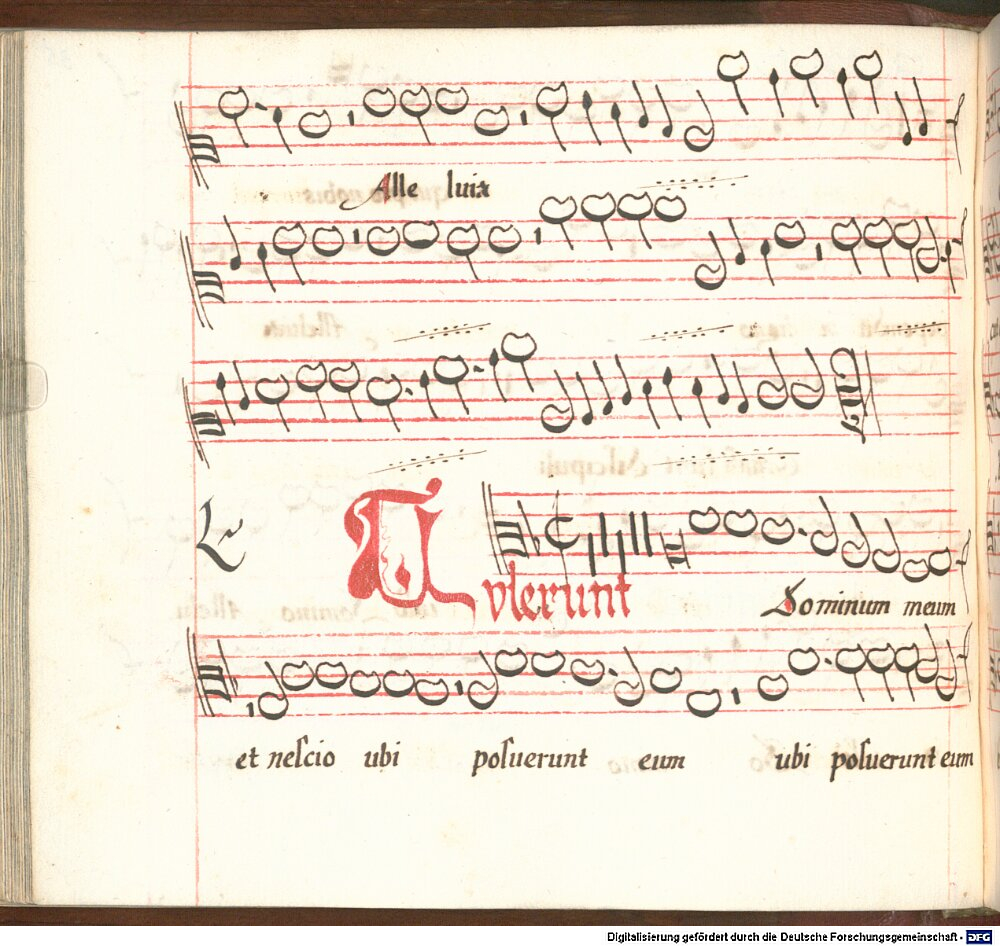 Alle luia
Tvlerunt
Dominum meum
et nescio ubi posuerunt eum ubi posuerunt eum
Digitalisierung gefördert durch die Deutsche Forschungsgemeinschaft - DFG